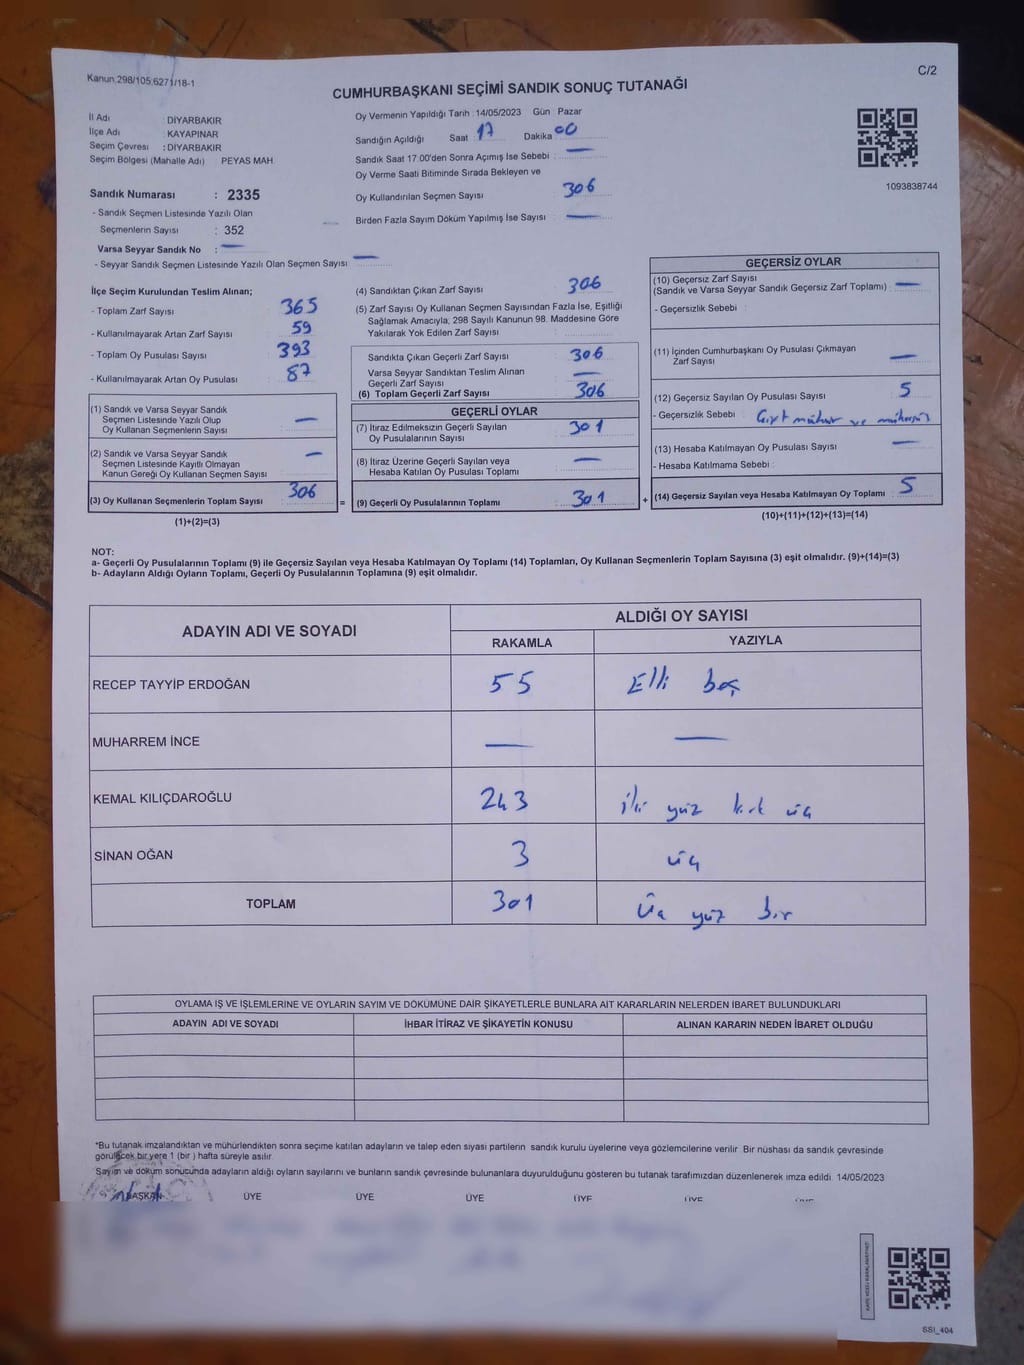 Kanun.298/105,6271/18-1
C/2
CUMHURBAŞKANI SEÇİMİ SANDIK SONUÇ TUTANAĞI
İl Adı : DİYARBAKIR
İlçe Adı : KAYAPINAR
Seçim Çevresi : DİYARBAKIR
Seçim Bölgesi (Mahalle Adı) PEYAS MAH.
Sandık Numarası : 2335
- Sandık Seçmen Listesinde Yazılı Olan
Seçmenlerin Sayısı : 352
Varsa Seyyar Sandık No : —
- Seyyar Sandık Seçmen Listesinde Yazılı Olan Seçmen Sayısı : —
Oy Vermenin Yapıldığı Tarih : 14/05/2023 Gün Pazar
Sandığın Açıldığı Saat 17 Dakika 00
Sandık Saat 17:00'den Sonra Açımış İse Sebebi : —
Oy Verme Saati Bitiminde Sırada Bekleyen ve
Oy Kullandırılan Seçmen Sayısı 306
Birden Fazla Sayım Döküm Yapılmış İse Sayısı : —
1093838744
İlçe Seçim Kurulundan Teslim Alınan;
- Toplam Zarf Sayısı : 365
- Kullanılmayarak Artan Zarf Sayısı : 59
- Toplam Oy Pusulası Sayısı : 393
- Kullanılmayarak Artan Oy Pusulası : 87
(1) Sandık ve Varsa Seyyar Sandık
Seçmen Listesinde Yazılı Olup
Oy Kullanan Seçmenlerin Sayısı —
(2) Sandık ve Varsa Seyyar Sandık
Seçmen Listesinde Kayıtlı Olmayan
Kanun Gereği Oy Kullanan Seçmen Sayısı —
(3) Oy Kullanan Seçmenlerin Toplam Sayısı 306
(1)+(2)=(3)
(4) Sandıktan Çıkan Zarf Sayısı : 306
(5) Zarf Sayısı Oy Kullanan Seçmen Sayısından Fazla İse, Eşitliği
Sağlamak Amacıyla, 298 Sayılı Kanunun 98. Maddesine Göre
Yakılarak Yok Edilen Zarf Sayısı :
Sandıkta Çıkan Geçerli Zarf Sayısı : 306
Varsa Seyyar Sandıktan Teslim Alınan
Geçerli Zarf Sayısı : —
(6) Toplam Geçerli Zarf Sayısı : 306
GEÇERLİ OYLAR
(7) İtiraz Edilmeksizin Geçerli Sayılan
Oy Pusulalarının Sayısı : 301
(8) İtiraz Üzerine Geçerli Sayılan veya
Hesaba Katılan Oy Pusulası Toplamı : —
= (9) Geçerli Oy Pusulalarının Toplamı : 301 +
GEÇERSİZ OYLAR
(10) Geçersiz Zarf Sayısı
(Sandık ve Varsa Seyyar Sandık Geçersiz Zarf Toplamı) : —
- Geçersizlik Sebebi :
(11) İçinden Cumhurbaşkanı Oy Pusulası Çıkmayan
Zarf Sayısı : —
(12) Geçersiz Sayılan Oy Pusulası Sayısı : 5
- Geçersizlik Sebebi : mühür ve mühürsüz
(13) Hesaba Katılmayan Oy Pusulası Sayısı : —
- Hesaba Katılmama Sebebi :
(14) Geçersiz Sayılan veya Hesaba Katılmayan Oy Toplamı : 5
(10)+(11)+(12)+(13)=(14)
NOT:
a- Geçerli Oy Pusulalarının Toplamı (9) ile Geçersiz Sayılan veya Hesaba Katılmayan Oy Toplamı (14) Toplamları, Oy Kullanan Seçmenlerin Toplam Sayısına (3) eşit olmalıdır. (9)+(14)=(3)
b- Adayların Aldığı Oyların Toplamı, Geçerli Oy Pusulalarının Toplamına (9) eşit olmalıdır.
ADAYIN ADI VE SOYADI
ALDIĞI OY SAYISI
RAKAMLA YAZIYLA
RECEP TAYYİP ERDOĞAN 55 Elli beş
MUHARREM İNCE — —
KEMAL KILIÇDAROĞLU 243 iki yüz kırk üç
SİNAN OĞAN 3 üç
TOPLAM 301 Üç yüz bir
OYLAMA İŞ VE İŞLEMLERİNE VE OYLARIN SAYIM VE DÖKÜMÜNE DAİR ŞİKAYETLERLE BUNLARA AİT KARARLARIN NELERDEN İBARET BULUNDUKLARI
ADAYIN ADI VE SOYADI İHBAR İTİRAZ VE ŞİKAYETİN KONUSU ALINAN KARARIN NEDEN İBARET OLDUĞU
*Bu tutanak imzalandıktan ve mühürlendikten sonra seçime katılan adayların ve talep eden siyasi partilerin sandık kurulu üyelerine veya gözlemcilerine verilir. Bir nüshası da sandık çevresinde
görülecek bir yere 1 (bir) hafta süreyle asılır.
Sayım ve döküm sonucunda adayların aldığı oyların sayılarını ve bunların sandık çevresinde bulunanlara duyurulduğunu gösteren bu tutanak tarafımızdan düzenlenerek imza edildi. 14/05/2023
BAŞKAN ÜYE ÜYE ÜYE ÜYE ÜYE ÜYE
SSI_404